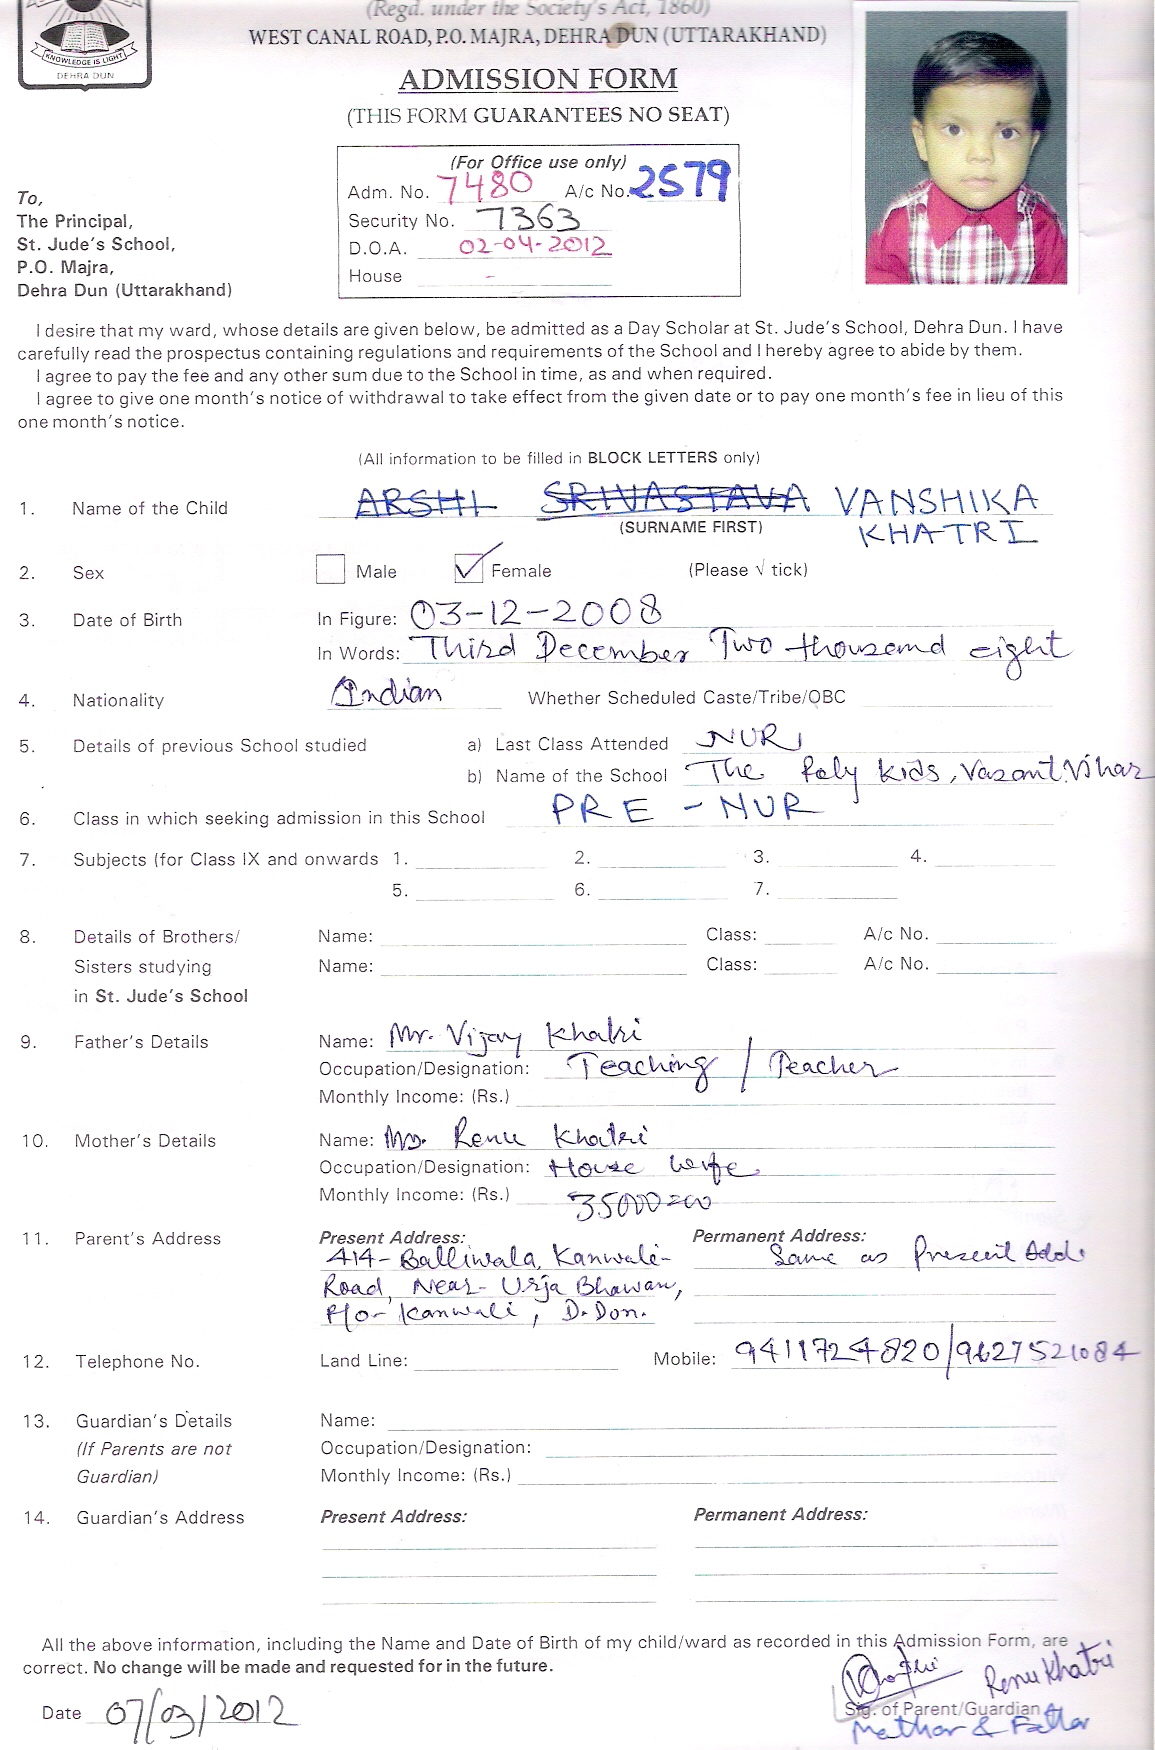 (Regd. under the Society's Act, 1860)
WEST CANAL ROAD, P.O. MAJRA, DEHRA DUN (UTTARAKHAND)
KNOWLEDGE IS LIGHT
DEHRA DUN
ADMISSION FORM
(THIS FORM GUARANTEES NO SEAT)
(For Office use only)
Adm. No. 7480 A/c No. 2579
Security No. 7363
D.O.A. 02-04-2012
House -
To,
The Principal,
St. Jude's School,
P.O. Majra,
Dehra Dun (Uttarakhand)
I desire that my ward, whose details are given below, be admitted as a Day Scholar at St. Jude's School, Dehra Dun. I have
carefully read the prospectus containing regulations and requirements of the School and I hereby agree to abide by them.
I agree to pay the fee and any other sum due to the School in time, as and when required.
I agree to give one month's notice of withdrawal to take effect from the given date or to pay one month's fee in lieu of this
one month's notice.
(All information to be filled in BLOCK LETTERS only)
1. Name of the Child ARSHI SRIVASTAVA VANSHIKA
(SURNAME FIRST) KHATRI
2. Sex Male Female (Please √ tick)
3. Date of Birth In Figure: 03-12-2008
In Words: Third December Two thousand eight
4. Nationality Indian Whether Scheduled Caste/Tribe/OBC
5. Details of previous School studied a) Last Class Attended NUR
b) Name of the School The Poly Kids, Vasant Vihar
6. Class in which seeking admission in this School PRE-NUR
7. Subjects (for Class IX and onwards 1. 2. 3. 4.
5. 6. 7.
8. Details of Brothers/ Name: Class: A/c No.
Sisters studying Name: Class: A/c No.
in St. Jude's School
9. Father's Details Name: Mr. Vijay Khatri
Occupation/Designation: Teaching / Teacher
Monthly Income: (Rs.)
10. Mother's Details Name: Ms. Renu Khatri
Occupation/Designation: House Wife
Monthly Income: (Rs.) 35000=00
11. Parent's Address Present Address: Permanent Address:
414-Balliwala, Kanwali- Same as Present Add.
Road, Near- Urja Bhawan,
P/o- Kanwali, D.Don.
12. Telephone No. Land Line: Mobile: 9411724820/9627521084
13. Guardian's Details Name:
(If Parents are not Occupation/Designation:
Guardian) Monthly Income: (Rs.)
14. Guardian's Address Present Address: Permanent Address:
All the above information, including the Name and Date of Birth of my child/ward as recorded in this Admission Form, are
correct. No change will be made and requested for in the future.
Renu Khatri
Date 07/03/2012 Sig. of Parent/Guardian
Mother & Father